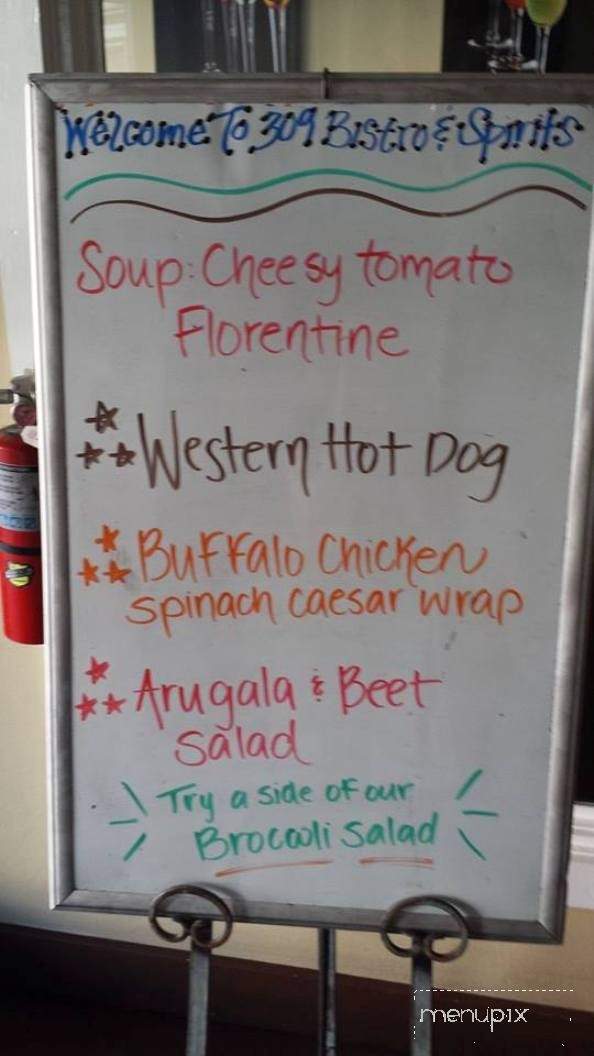 Welcome To 309 Bistro & Spirits
Soup: Cheesy tomato
Florentine
Western Hot Dog
Buffalo Chicken
spinach caesar wrap
Arugala & Beet
salad
Try a side of our
Broccoli salad
menupix